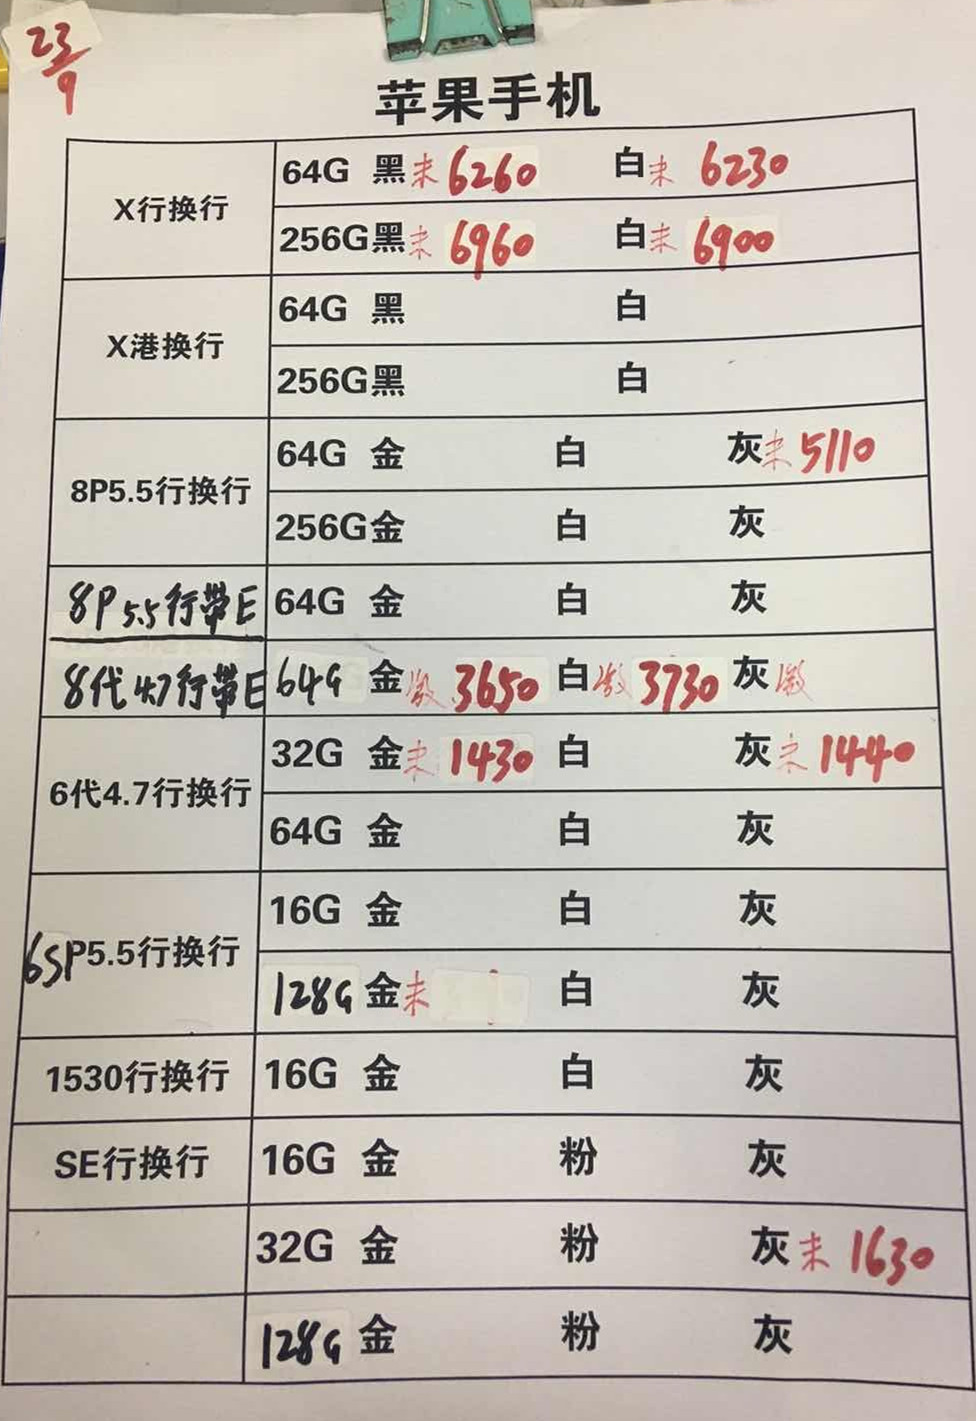 23/9
苹果手机
X行换行
64G 黑未 6260 白未 6230
256G黑未 6960 白未 6900
X港换行
64G 黑 白
256G黑 白
8P5.5行换行
64G 金 白 灰未 5110
256G金 白 灰
8P5.5行带E
64G 金 白 灰
8代4.7行带E
64G 金激 3650 白激 3730 灰激
6代4.7行换行
32G 金未 1430 白 灰未 1440
64G 金 白 灰
6SP5.5行换行
16G 金 白 灰
128G 金未 白 灰
1530行换行
16G 金 白 灰
SE行换行
16G 金 粉 灰
32G 金 粉 灰未 1630
128G 金 粉 灰